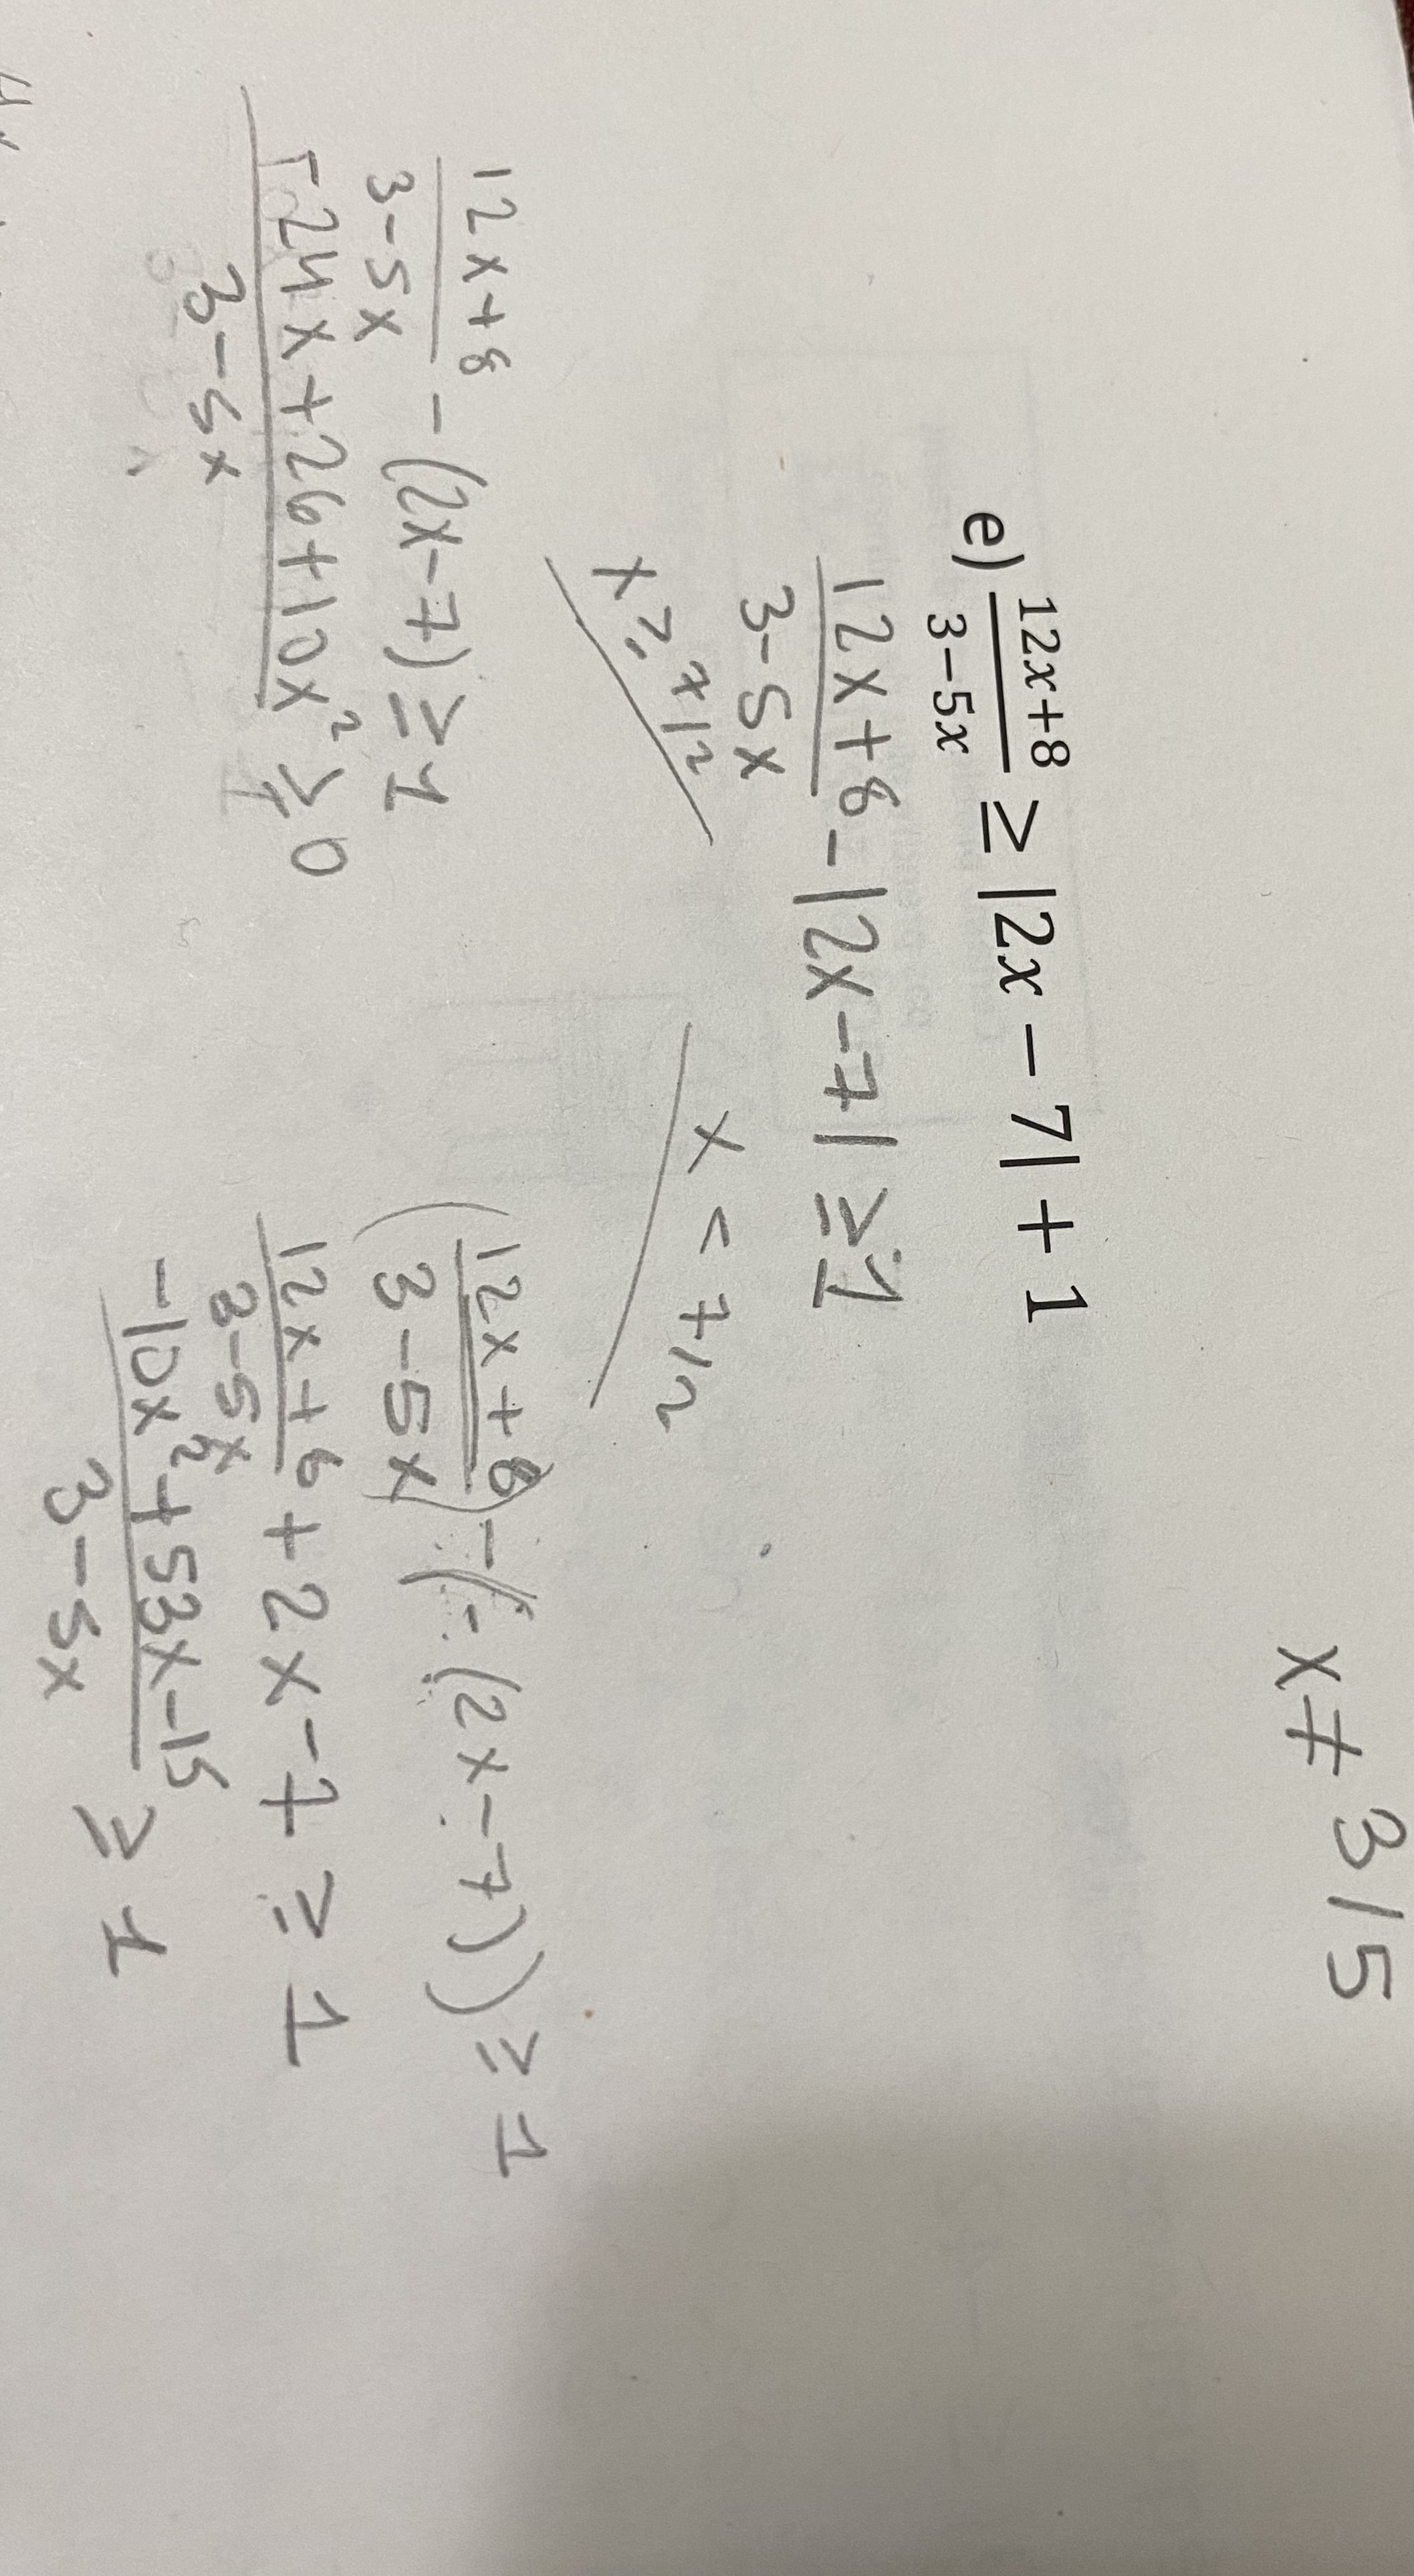 x ≠ 3/5
e) 12x+8 / 3−5x ≥ |2x − 7| + 1
12x+8 / 3−5x − |2x−7| ≥ 1
x ≥ 7/2
x < 7/2
12x+8 / 3−5x − (2x−7) ≥ 1
−24x+26+10x² / 3−5x ≥ 0
(12x+8 / 3−5x) − (−(2x−7)) ≥ 1
12x+6 / 3−5x + 2x−7 ≥ 1
−10x²+53x−15 / 3−5x ≥ 1